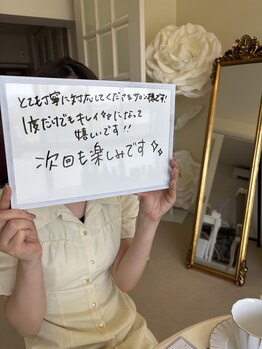 とても丁寧に対応してくださるサロン様です!
1度だけでもキレイになって
嬉しいです!!
次回も楽しみです